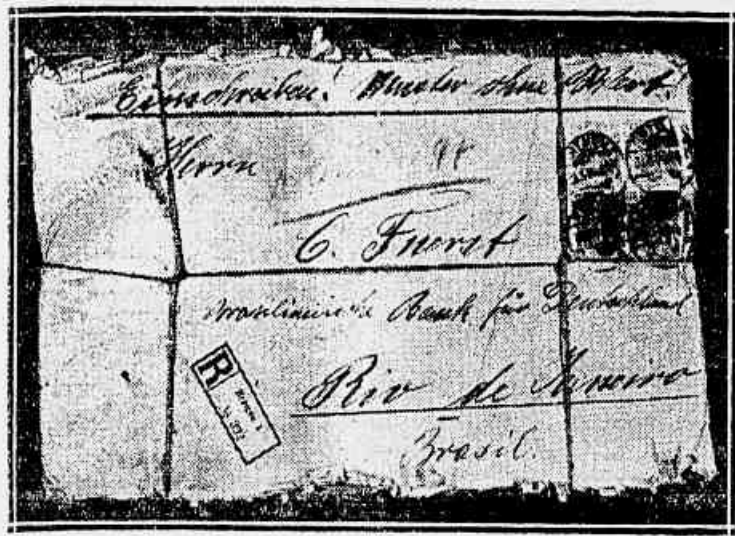 Einschreiben! Muster ohne Wert!
Herrn
C. Fuerst
Brasilianische Bank für Deutschland
R
Rio de Janeiro
Brasil.